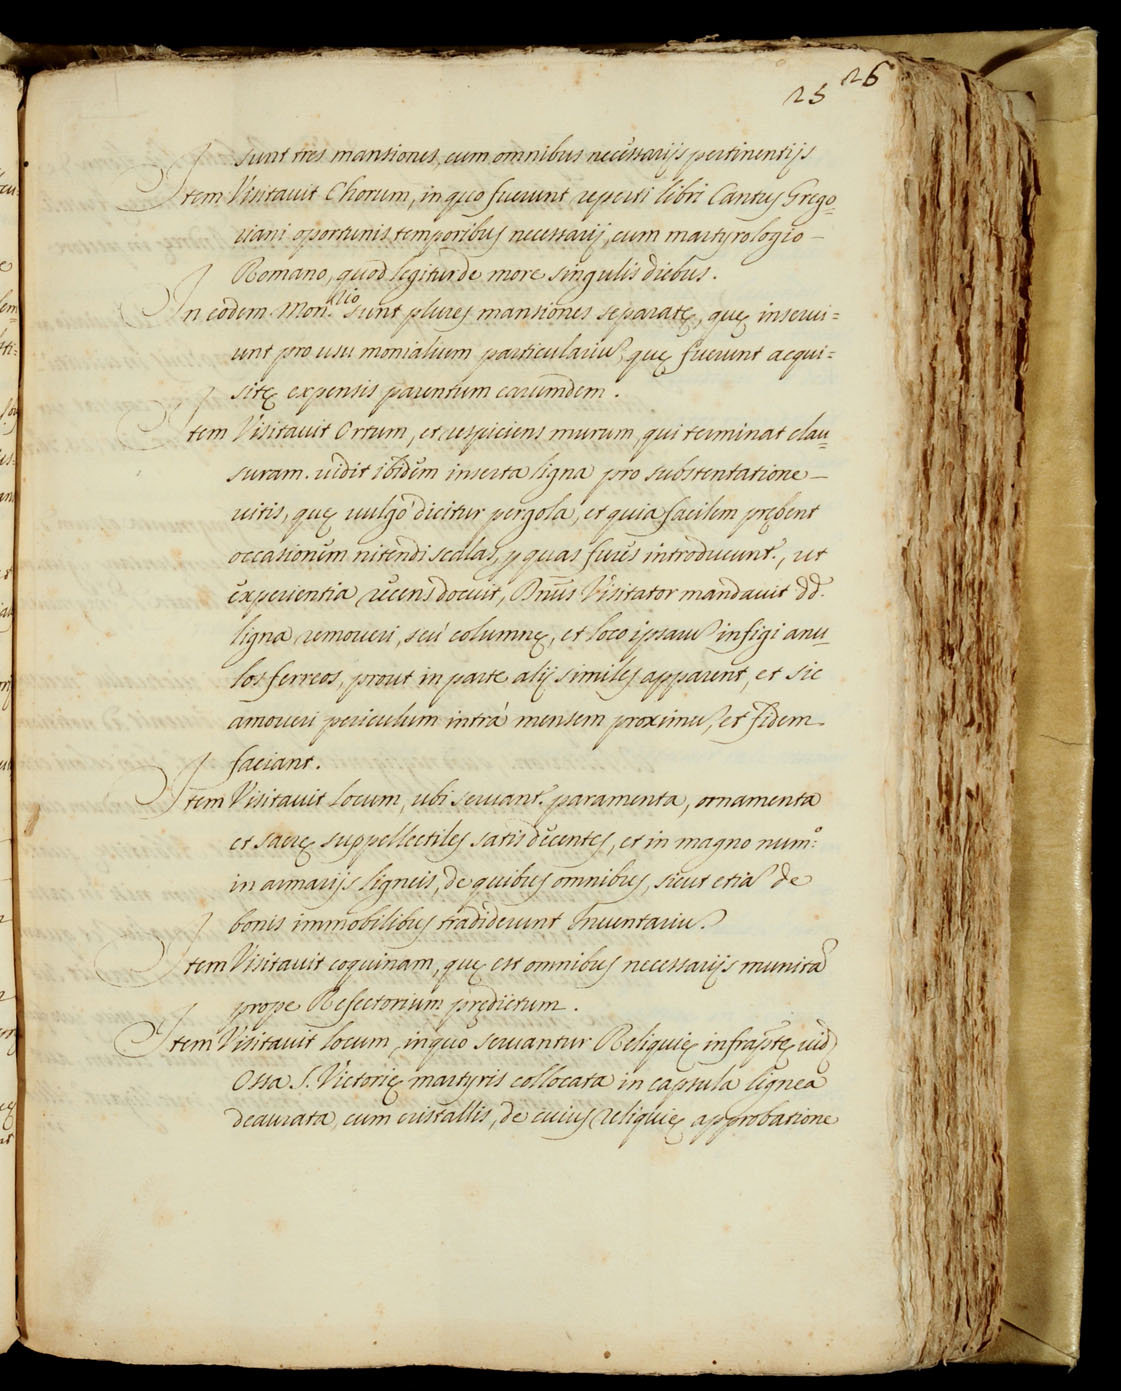 25 26
sunt tres mansiones, cum omnibus necessarijs pertinentijs
Item Visitauit Chorum, in quo fuerunt reperti libri Cantus Grego=
riani oportunis temporibus necessarij, cum martyrologio –
Romano, quod legitur de more singulis diebus.
In eodem Mon.rio sunt plures mansiones separatę, quę inserui=
unt pro usu monialium particulariũ, quę fuerunt acqui=
sitę expensis parentum earumdem.
Item Visitauit Ortum, et respiciens murum, qui terminat clau=
suram. uidit ibidem inserta ligna pro substentatione –
uitis, quę uulgò dicitur pergola, et quia facilem prębent
occasionem nitendi scalas, p quas fures introducunt.r, ut
experientia recens docuit, Dnũs Visitator mandauit dd.
ligna remoueri, seù columnę, et loco ipsarũ infigi anu=
los ferreos, prout in parte alij similes apparent, et sic
amoueri periculum intrà mensem proximũ, et fidem
faciant.
Item Visitauit Locum, ubi seruant.r paramenta, ornamenta
et sacrę suppellectiles satis decentes, et in magno num.o
in armarijs ligneis, de quibus omnibus, sicut etiã de
bonis immobilibus tradiderunt Inuentariũ.
Item Visitauit coquinam, quę est omnibus necessarijs munita
prope Refectorium prędictum.
Item Visitauit Locum, in quo seruantur Reliquię infraptę uid.
Ossa S. Victorię martyris collocata in capsula lignea
deaurata, cum cristallis, de cuius reliquię approbatione